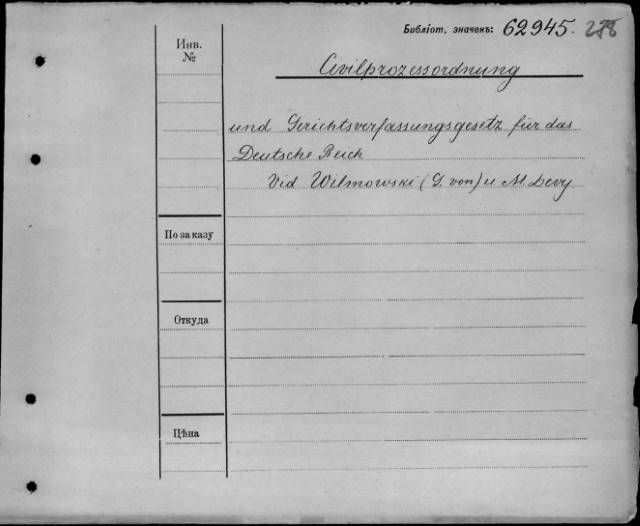 Библіот. значекъ: 62945. 278
Инв.
№
Civilprozessordnung
und Gerichtsverfassungsgesetz für das
Deutsche Reich
Vid Wilmowski (G. von) u M. Levy.
По заказу
Откуда
Цѣна